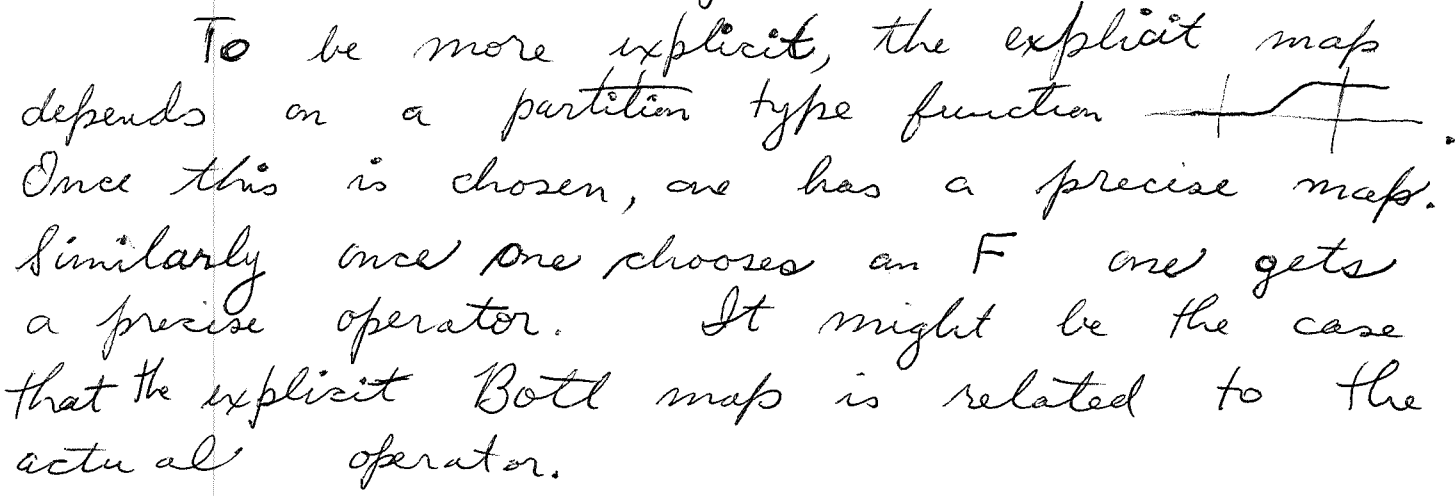 To be more explicit, the explicit map
depends on a partition type function .
Once this is chosen, one has a precise map.
Similarly once one chooses an F one gets
a precise operator. It might be the case
that the explicit Bott map is related to the
actual operator.